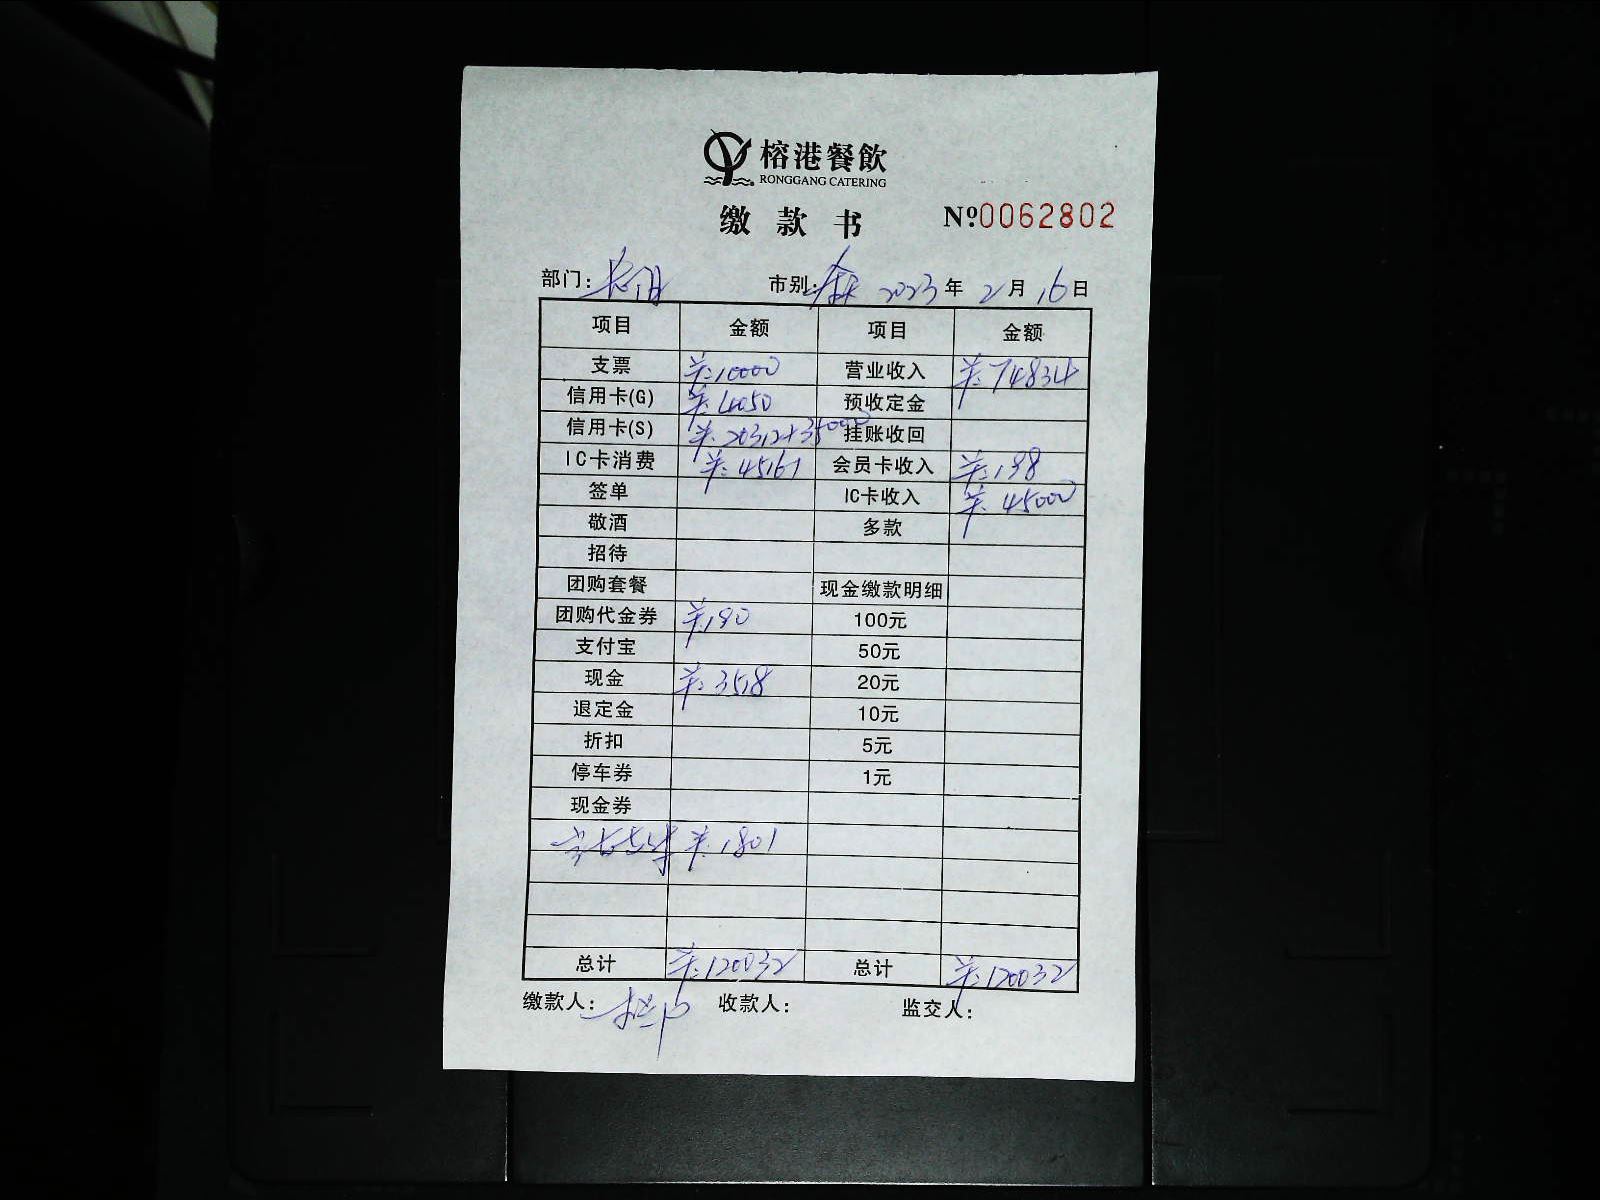 榕港餐飲
RONGGANG CATERING
缴款书 №0062802
部门: 市别: 2023年 2月 16日
项目 金额 项目 金额
支票 羊:10000 营业收入 羊:74834
信用卡(G) 羊:4050 预收定金
信用卡(S) 羊:20312+35000 挂账收回
IC卡消费 羊:45161 会员卡收入 羊:198
签单 IC卡收入 羊:45000
敬酒 多款
招待
团购套餐 现金缴款明细
团购代金券 羊:190 100元
支付宝 50元
现金 羊:3518 20元
退定金 10元
折扣 5元
停车券 1元
现金券
羊:1801
总计 羊:120032 总计 羊:120032
缴款人: 收款人: 监交人: